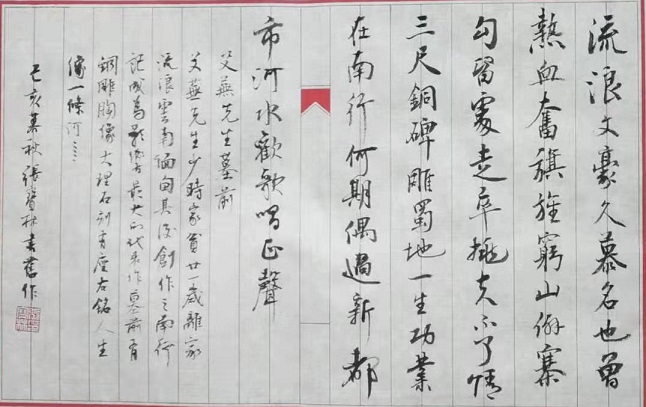 流浪文豪久慕名也曾
熱血奮旗旌窮山僻寨
勾留處走卒挑夫不了情
三尺銅碑雕蜀地一生功業
在南行何期偶過新都
市河水歡歌唱正聲
艾蕪先生墓前
艾蕪先生少時家貧廿一歲離家
流浪雲南緬甸其後創作之南行
記成為影響最大的代表作墓前有
銅雕胸像大理石刻有座右銘人生
像一條河……
己亥暮秋張林書舊作